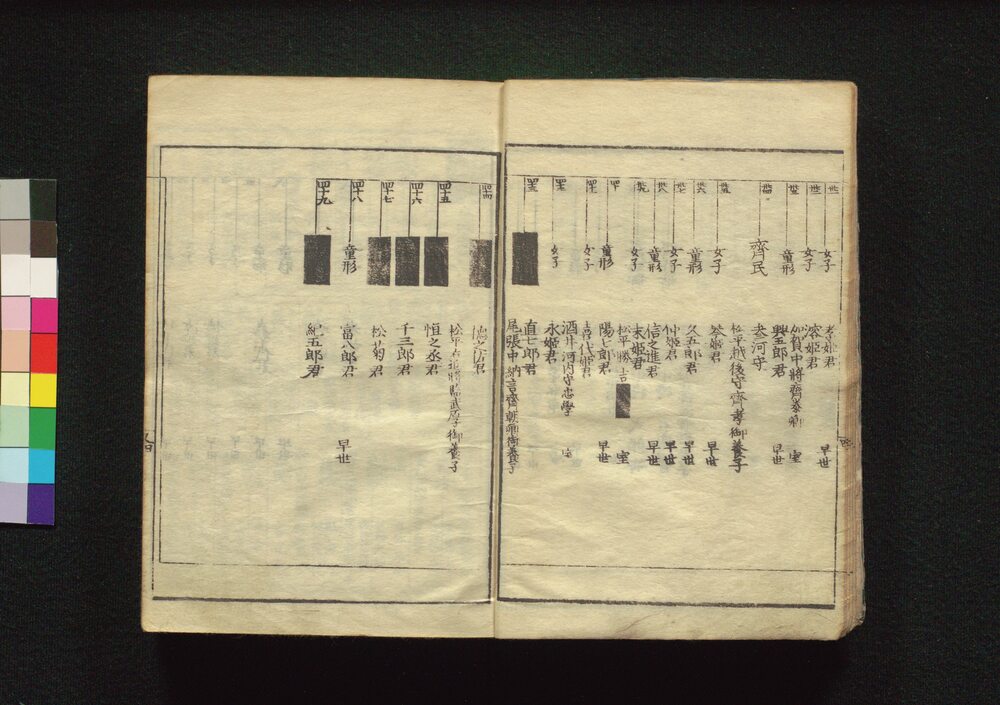 女子
孝姫君
早世
女子
溶姫君
加賀中將齊泰卿
室
童形
興五郎君
早世
齊民
夫河守
松平越後守齊孝御養子
女子
早世
童形
久五郎君
早世
女子
仲姫君
早世
童形
信之進君
早世
女子
末姫君
松平勝吉
室
童形
陽七郎君
早世
女子
喜代姫君
酒井河内守忠學
室
女子
永姫君
直七郎君
尾張中納言齊朝卿御養子
四十四
四十五
恒之丞君
御養子
四十六
千三郎君
四十七
松菊君
四十八
童形
富八郎君
早世
四十九
紀五郎君